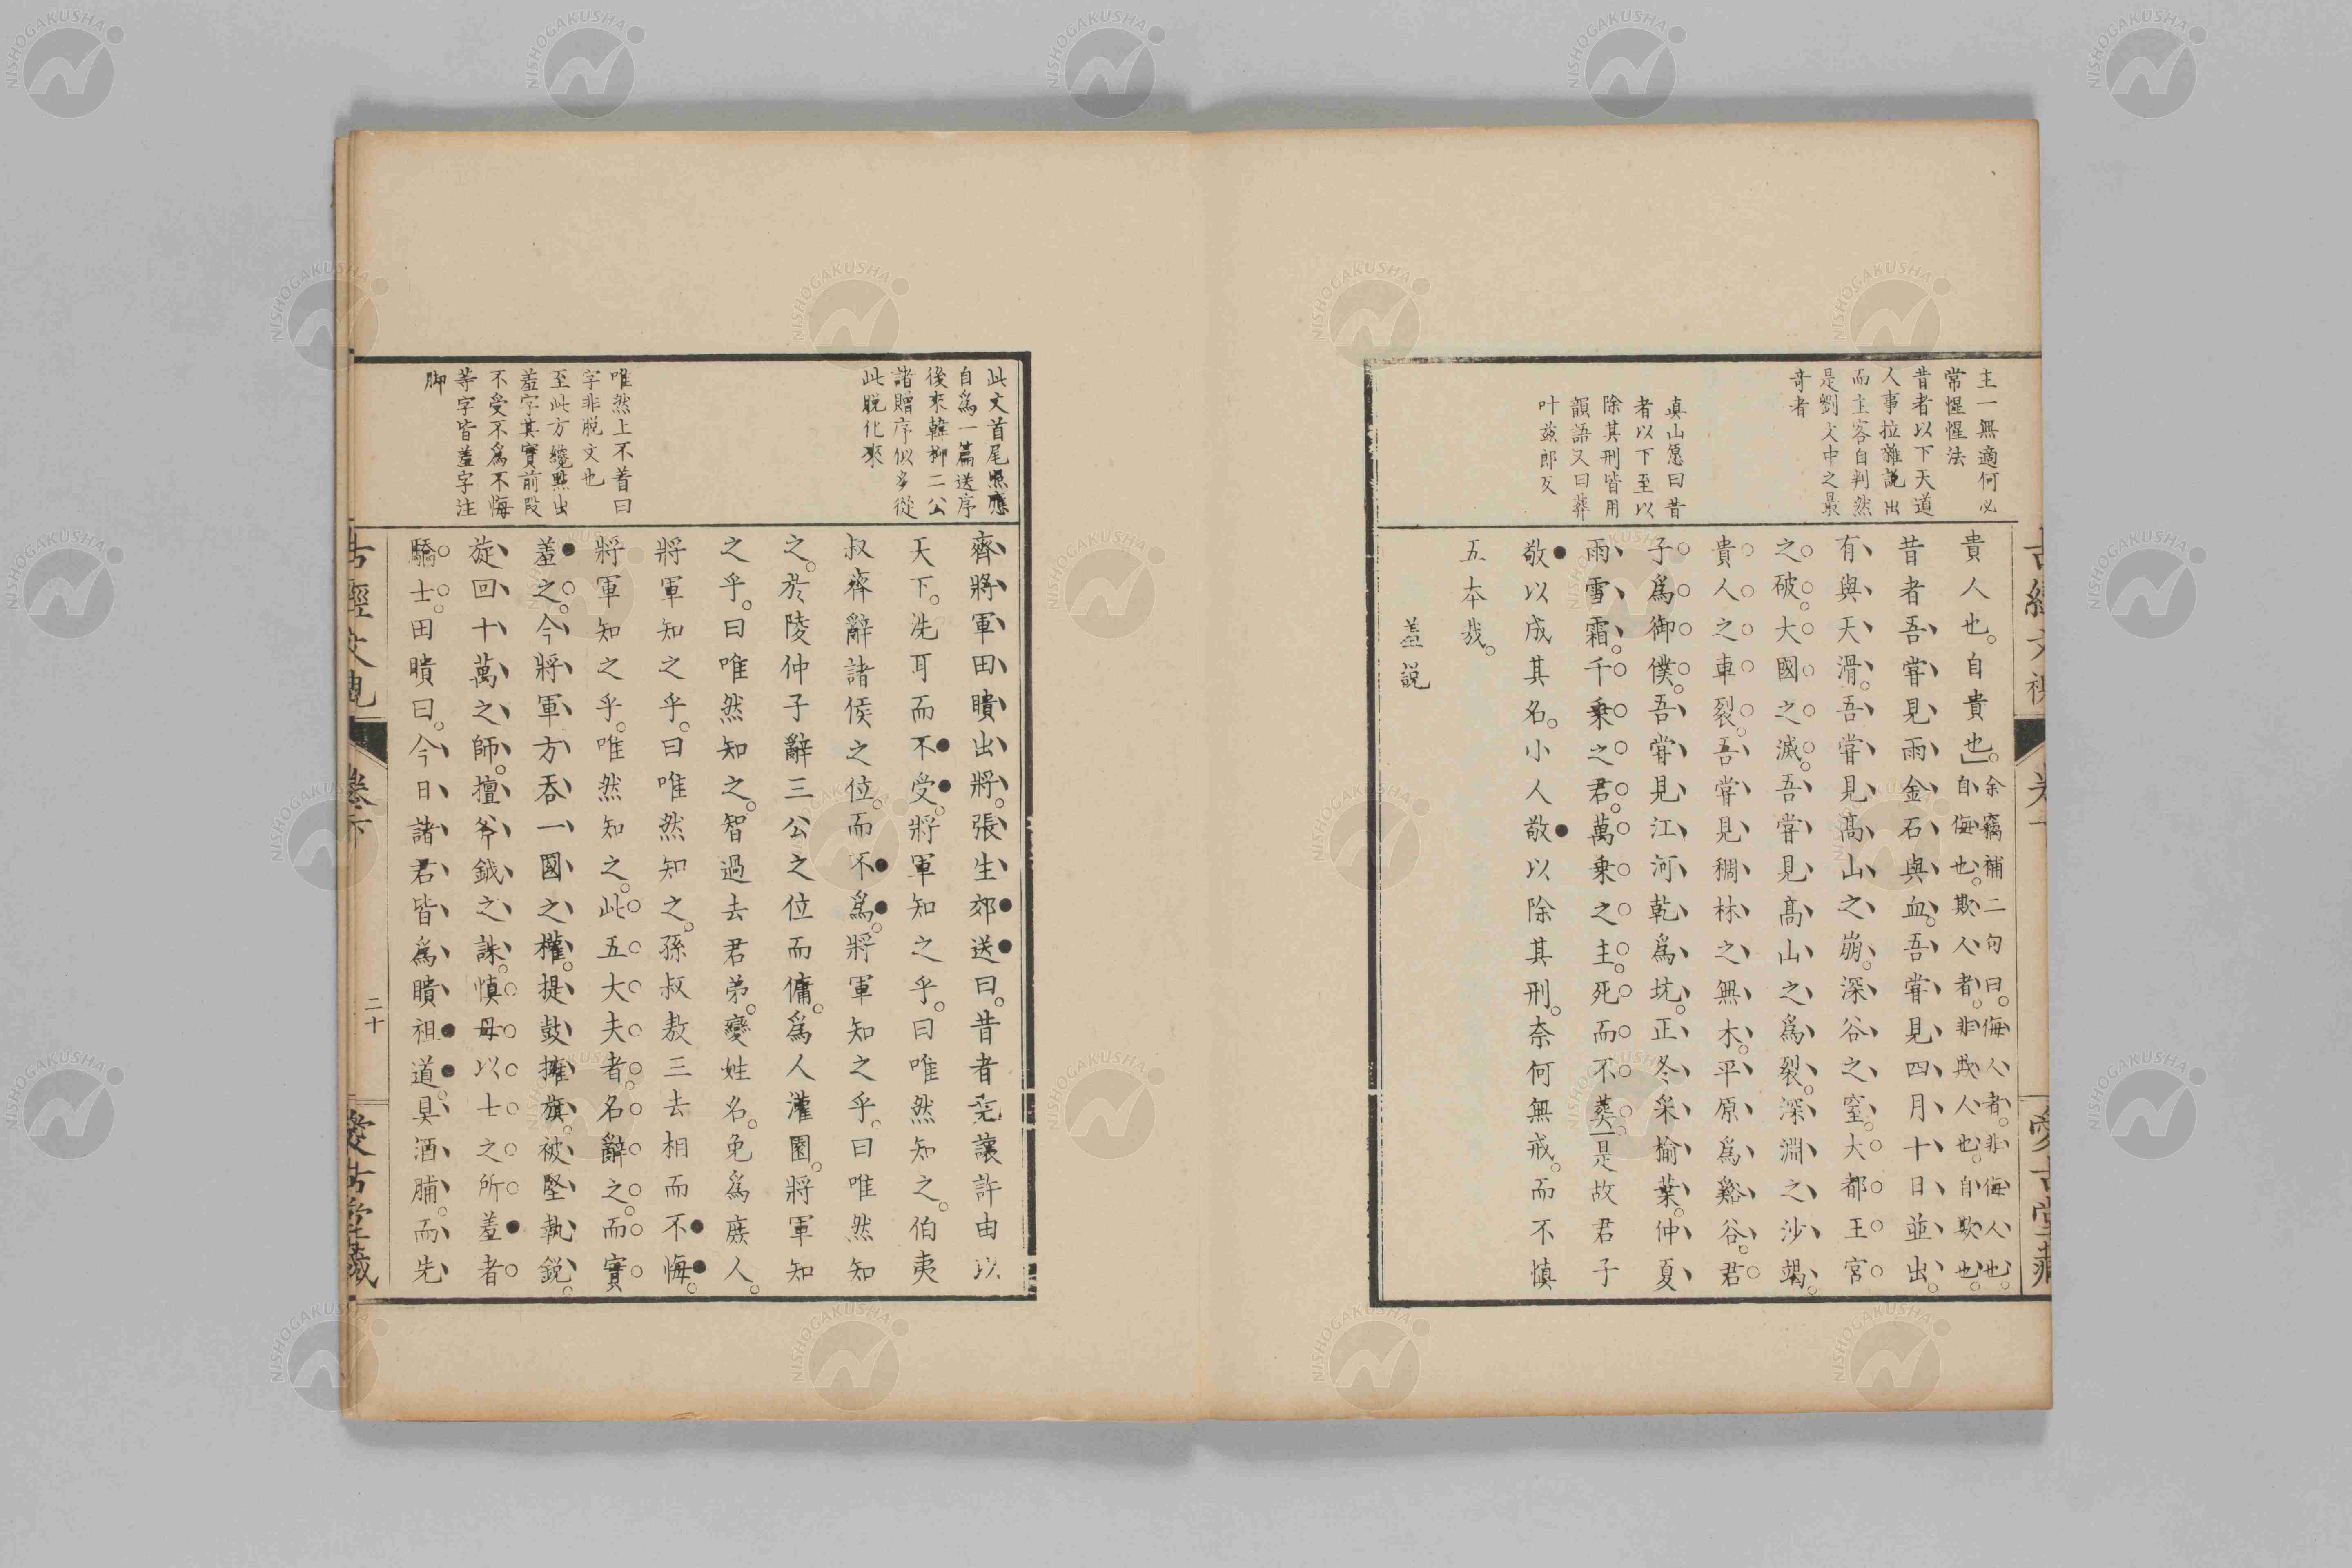 主一無適何必
常惺惺法
昔者以下天道
人事拉雜說出
而主客自判然
是劉文中之最
奇者
真山愿曰昔
者以下至以
除其刑皆用
韻語又曰葬
叶茲郎反
貴人也。自貴也。」余竊補二句曰。侮人者。非侮人也。
自侮也。欺人者。非欺人也。自欺也。
昔者吾甞見雨金石與血。吾甞見四月十日並出。
有與天滑。吾甞見高山之崩。深谷之窒。大都王宮
之破。大國之滅。吾甞見高山之爲裂。深淵之沙竭。
貴人之車裂。吾甞見稠林之無木。平原爲谿谷。君
子爲御僕。吾甞見江河乾爲坑。正冬采榆葉。仲夏
雨雪霜。千乗之君。萬乗之主。死而不葬。是故君子
敬以成其名。小人敬以除其刑。奈何無戒。而不慎
五本哉。
羞說
此文首尾照應
自爲一篇送序
後來韓柳二公
諸贈序似多從
此脫化來
唯然上不着曰
字非脫文也
至此方纔點出
羞字其實前段
不受不爲不悔
等字皆羞字注
脚
齊將軍田瞶出將。張生郊送曰。昔者尭讓許由以
天下。洗耳而不受。將軍知之乎。曰唯然知之。伯夷
叔齊辭諸侯之位。而不爲。將軍知之乎。曰唯然知
之。於陵仲子辭三公之位而傭。爲人灌園。將軍知
之乎。曰唯然知之。智過去君弟。變姓名。免爲庶人。
將軍知之乎。曰唯然知之。孫叔敖三去相而不悔。
將軍知之乎。唯然知之。此五大夫者。名辭之。而實
羞之。今將軍方吞一國之權。提鼓擁旗。被堅執銳。
旋回十萬之師。擅斧鉞之誅。慎毋以士之所羞者
驕士。田瞶曰。今日諸君皆爲瞶祖道。具酒脯。而先
二十